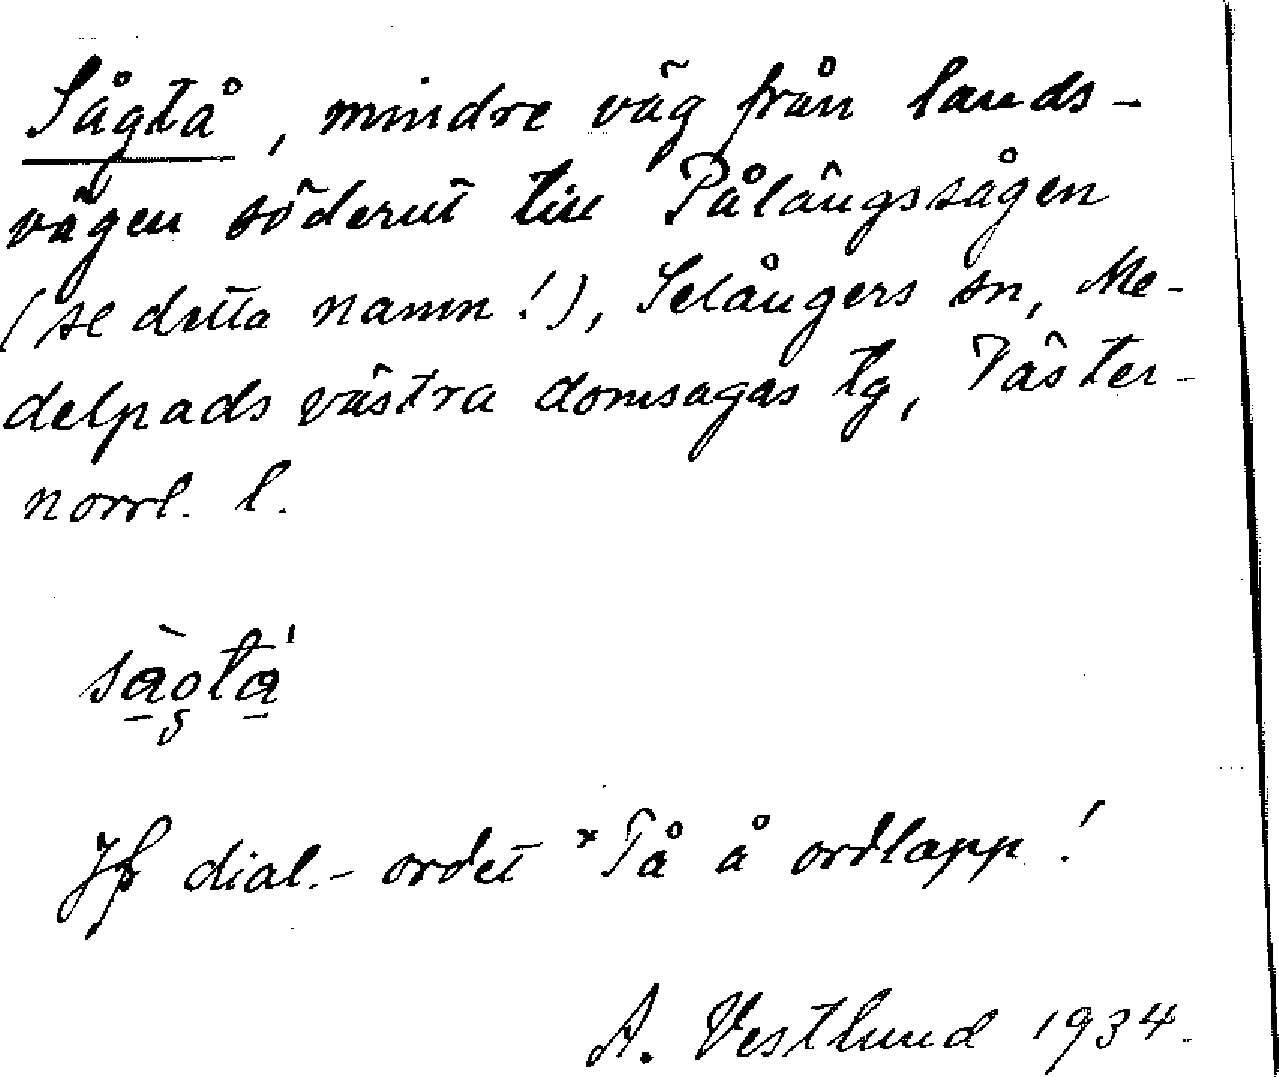 Sågtå, mindre väg från lands-
vägen söderut till Pålängssågen
(se detta namn!), Selångers sn, Me-
delpads västra domsagas tg, Väster-
norrl. l.
Jfr dial.-ordet *Tå å ordlapp!
A. Vestlund 1934.